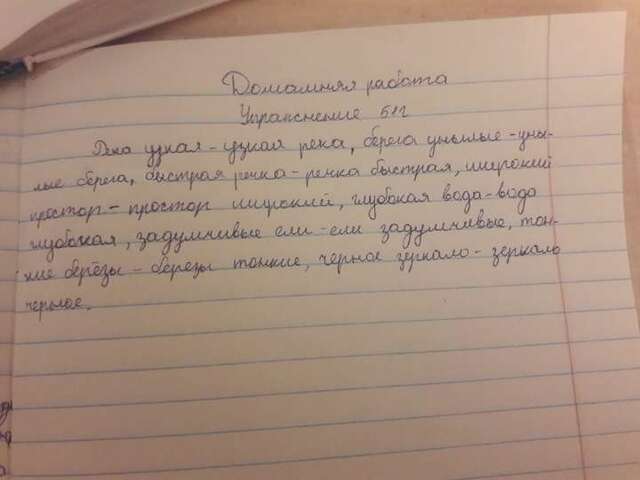 Домашняя работа
Упражнение 511
Река узкая - узкая река, берега унылые - уны-
лые берега, быстрая речка - речка быстрая, широкий
простор - простор широкий, глубокая вода - вода
глубокая, задумчивые ели - ели задумчивые, тон-
кие берёзы - берёзы тонкие, черное зеркало - зеркало
черное.